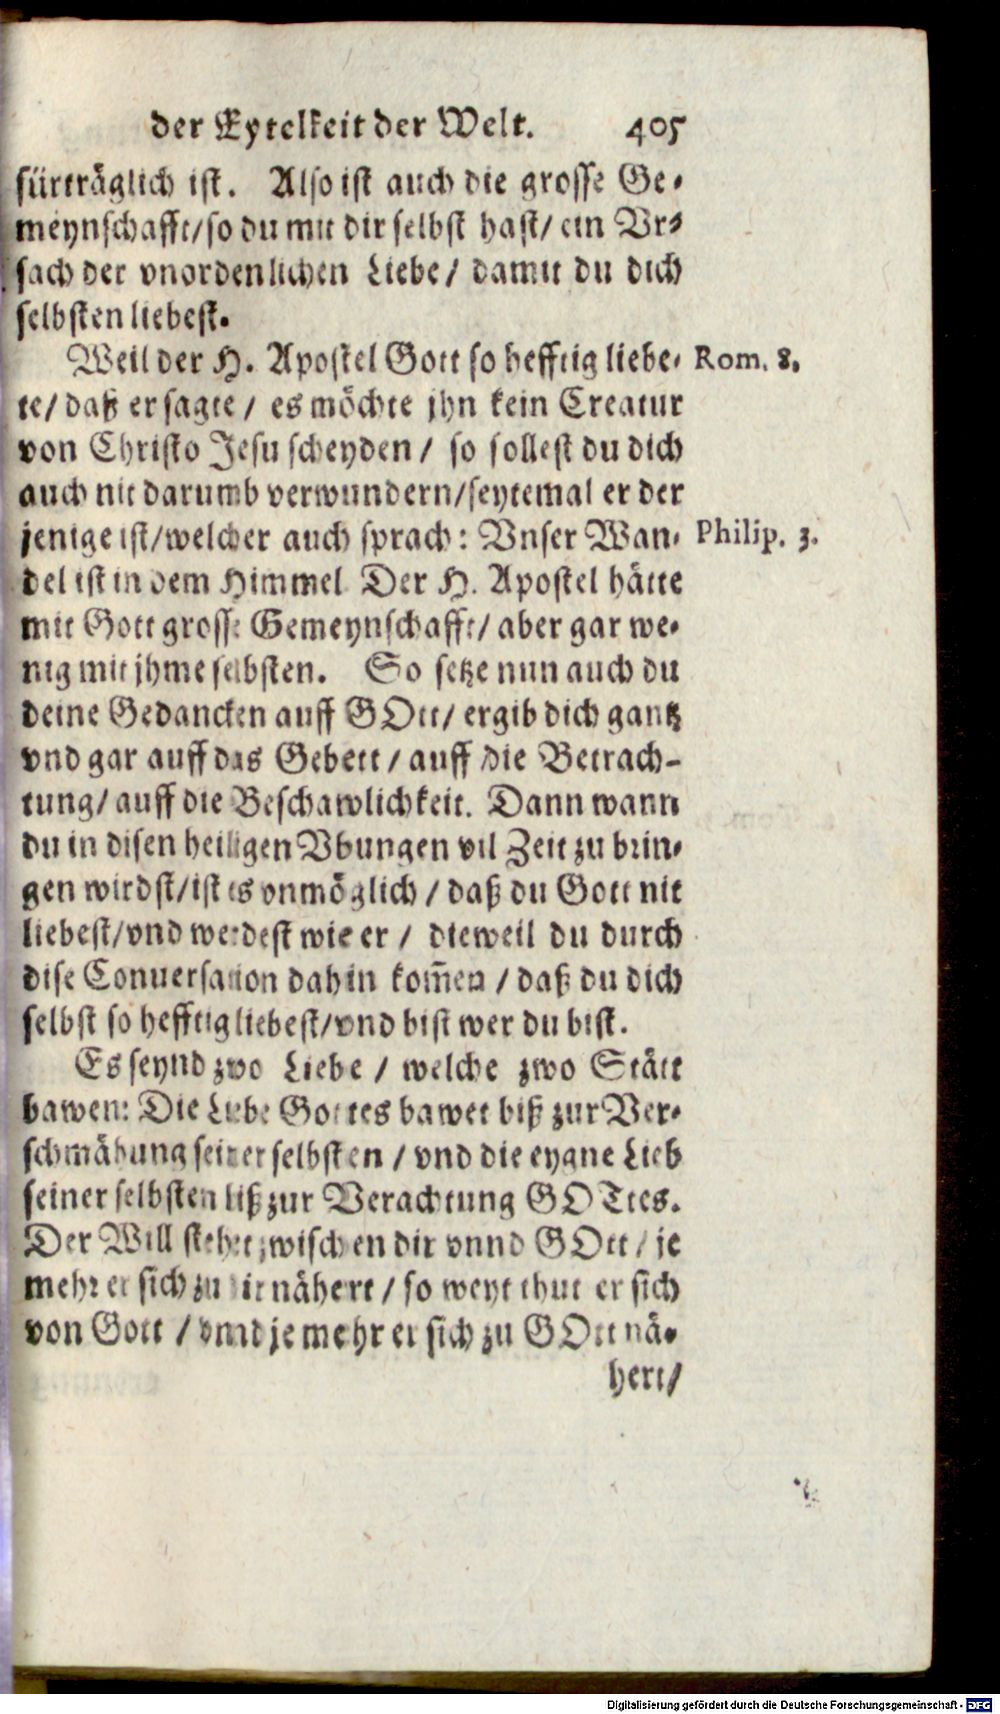 der Eytelkeit der Welt. 405
fürträglich ist. Also ist auch die grosse Ge-
meynschafft/so du mit dir selbst hast/ ein Vr-
sach der vnordenlichen Liebe/ damit du dich
selbsten liebest.
Weil der H. Apostel Gott so hefftig liebe- Rom. 8.
te/ daß er sagte / es möchte jhn kein Creatur
von Christo Jesu scheyden / so sollest du dich
auch nit darumb verwundern/seytemal er der
jenige ist/welcher auch sprach: Vnser Wan- Philip. 3.
del ist in dem Himmel. Der H. Apostel hätte
mit Gott grosse Gemeynschafft/ aber gar we-
nig mit jhme selbsten. So setze nun auch du
deine Gedancken auff GOtt/ ergib dich gantz
vnd gar auff das Gebett / auff die Betrach-
tung/ auff die Beschawlichkeit. Dann wann
du in disen heiligen Vbungen vil Zeit zu brin-
gen wirdst/ist es vnmöglich / daß du Gott nit
liebest/vnd werdest wie er / dieweil du durch
dise Conuersation dahin kom̃en / daß du dich
selbst so hefftig liebest/vnd bist wer du bist.
Es seynd zwo Liebe / welche zwo Stätt
bawen: Die Liebe Gottes bawet biß zur Ver-
schmähung seiner selbsten / vnd die eygne Lieb
seiner selbsten biß zur Verachtung GOTtes.
Der Will stehet zwischen dir vnnd GOtt / je
mehr er sich zu dir nähert / so weyt thut er sich
von Gott / vnnd je mehr er sich zu GOtt nä-
hert/
Digitalisierung gefördert durch die Deutsche Forschungsgemeinschaft - DFG